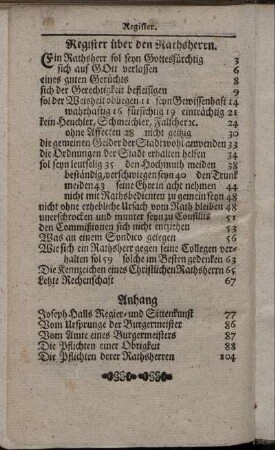 Register.
Register über den Rathsherrn.
Ein Rathsherr sol seyn Gottesfürchtig 3
sich auf GOtt verlassen 6
eines guten Gerüchts 8
sich der Gerechtigkeit befleisigen 9
sol der Weisheit obliegen 11 seyn Gewissenhaft 14
wahrhaftig 16 fürsichtig 19 einträchtig 21
kein Heuchler, Schmeichler, Fälscher ꝛc. 24
ohne Affecten 28 nicht geitzig 30
die gemeinen Gelder der Stadt wohl anwenden 33
die Ordnungen der Stadt erhalten helfen 34
sol seyn leutselig 35 den Hochmuth meiden 38
beständig, verschwiegen seyn 40 den Trunk
meiden 43 seine Ehr in acht nehmen 44
nicht mit Rathsbedienten zu gemein seyn 48
nicht ohne erhebliche Ursach vom Rath bleiben 48
unerschrocken und munter seyn zu Consiliis 51
den Commißionen sich nicht entziehen 53
Was an einem Syndico gelegen 56
Wie sich ein Rathsherr gegen seine Collegen ver-
halten sol 59 solche im Besten gedenken 63
Die Kennzeichen eines Christlichen Rathsherrn 65
Letzte Rechenschaft 67
Anhang
Joseph Halls Regier- und Sittenkunst 77
Vom Ursprunge der Burgermeister 86
Vom Amte eines Burgermeisters 87
Die Pflichten einer Obrigkeit 88
Die Pflichten derer Rathsherren 104